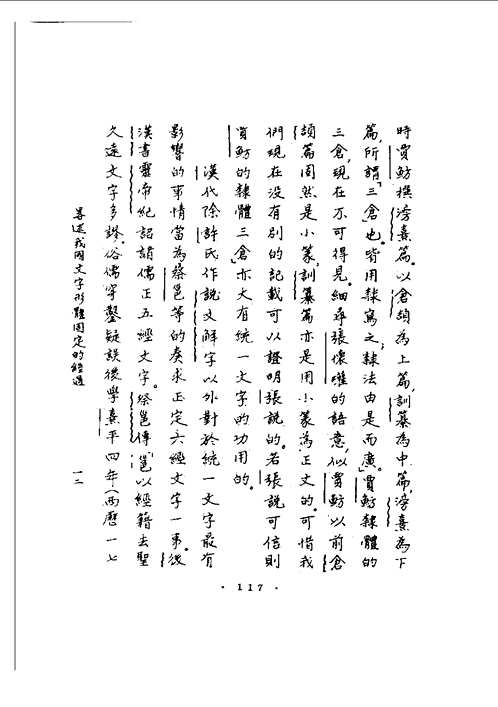 時賈魴撰滂熹篇。以倉頡為上篇,訓纂為中篇,滂熹為下
篇,所謂「三倉」也。皆用隸寫之;隸法由是而廣。」賈魴隸體的
三倉,現在亦可得見。細尋張懷瓘的語意,似賈魴以前倉
頡篇固然是小篆,訓纂篇亦是用小篆為正文的。可惜我
們現在没有別的記載可以證明張說的。若張說可信則
賈魴的隸體「三倉」亦大有統一文字的功用的。
漢代除許氏作說文解字以外對於統一文字最有
影響的事情當為蔡邕等的奏求正定六經文字一事。後
漢書靈帝紀詔諸儒正五經文字。蔡邕傳「邕以經籍去聖
久遠文字多謬,俗儒穿鑿疑誤後學熹平四年(西曆一七
畧述我國文字形體固定的經過
一二
·117·